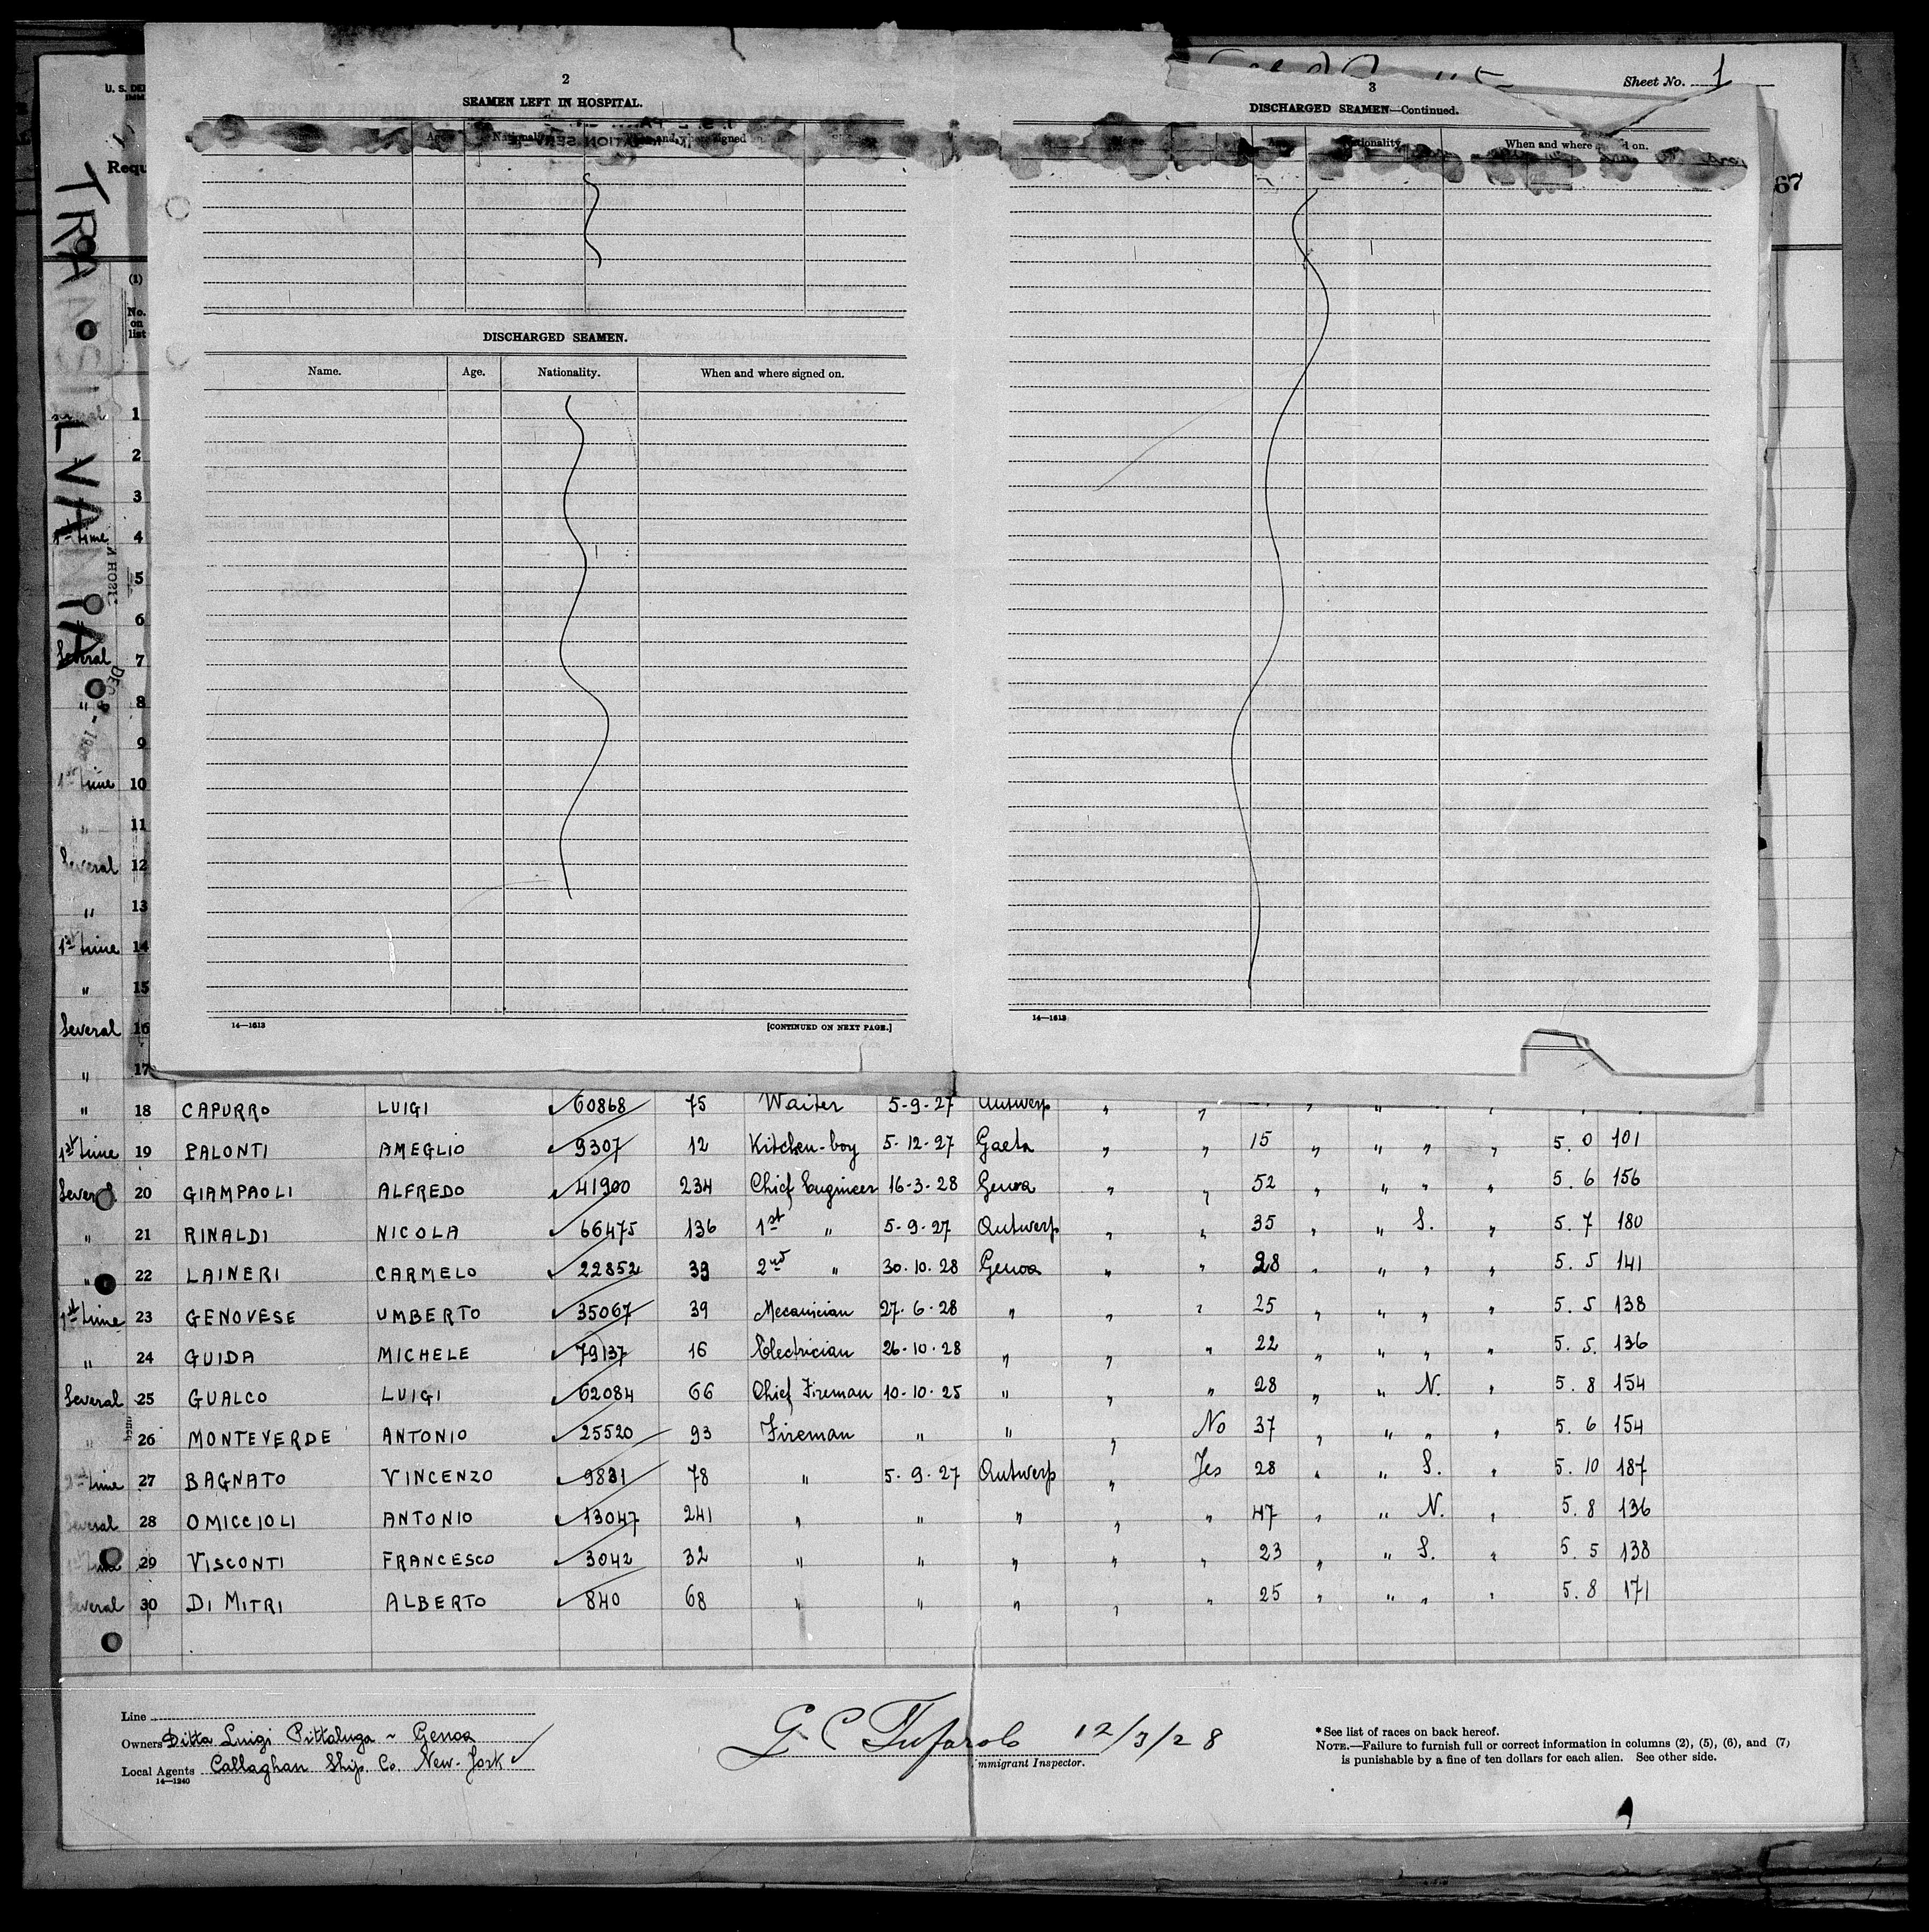 Sheet No. 1
67
U. S. DE
IMM
Requ
TRANSILVANIA
(1)
No.
on
list
2
SEAMEN LEFT IN HOSPITAL.
Age. Nationality. When and where signed on.
DISCHARGED SEAMEN.
Name. Age. Nationality. When and where signed on.
14—1613 [CONTINUED ON NEXT PAGE.]
3
DISCHARGED SEAMEN—Continued.
Name. Age. Nationality. When and where signed on.
14—1613
1
" 2
3
1st time 4
5
6
Several 7
" 8
9
1st time 10
" 11
Several 12
" 13
1st time 14
" 15
Several 16
" 17
" 18 CAPURRO LUIGI 60868 75 Waiter 5-9-27 Antwerp " "
1st time 19 PALONTI AMEGLIO 9307 12 Kitchen-boy 5-12-27 Gaeta " " 15 " " " " 5. 0 101
Several 20 GIAMPAOLI ALFREDO 41900 234 Chief Engineer 16-3-28 Genoa " " 52 " " " " 5. 6 156
" 21 RINALDI NICOLA 66475 136 1st " 5-9-27 Antwerp " " 35 " " S. " 5. 7 180
" 22 LAINERI CARMELO 22852 39 2nd " 30.10.28 Genoa " " 28 " " " " 5. 5 141
1st time 23 GENOVESE UMBERTO 35067 39 Mecanician 27-6-28 " " " 25 " " " " 5. 5 138
" 24 GUIDA MICHELE 79137 16 Electrician 26-10-28 " " " 22 " " " " 5. 5. 136
Several 25 GUALCO LUIGI 62084 66 Chief Fireman 10-10-25 " " " 28 " " N. " 5. 8 154
" 26 MONTEVERDE ANTONIO 25520 93 Fireman " " " No 37 " " " " 5. 6 154
1st time 27 BAGNATO VINCENZO 9831 78 " 5-9-27 Antwerp " Jes 28 " " S. " 5. 10 187
Several 28 OMICCIOLI ANTONIO 13047 241 " " " " " 47 " " N. " 5. 8 136
1st time 29 VISCONTI FRANCESCO 3042 32 " " " " " 23 " " S. " 5. 5 138
Several 30 DI MITRI ALBERTO 840 68 " " " " " 25 " " " " 5. 8 171
Line
Owners Ditta Luigi Pittaluga ~ Genoa
Local Agents Callaghan Ship. Co. New-Jork
14—1240
G C Tufarolo 12/3/28
Immigrant Inspector.
* See list of races on back hereof.
NOTE.—Failure to furnish full or correct information in columns (2), (5), (6), and (7)
is punishable by a fine of ten dollars for each alien. See other side.